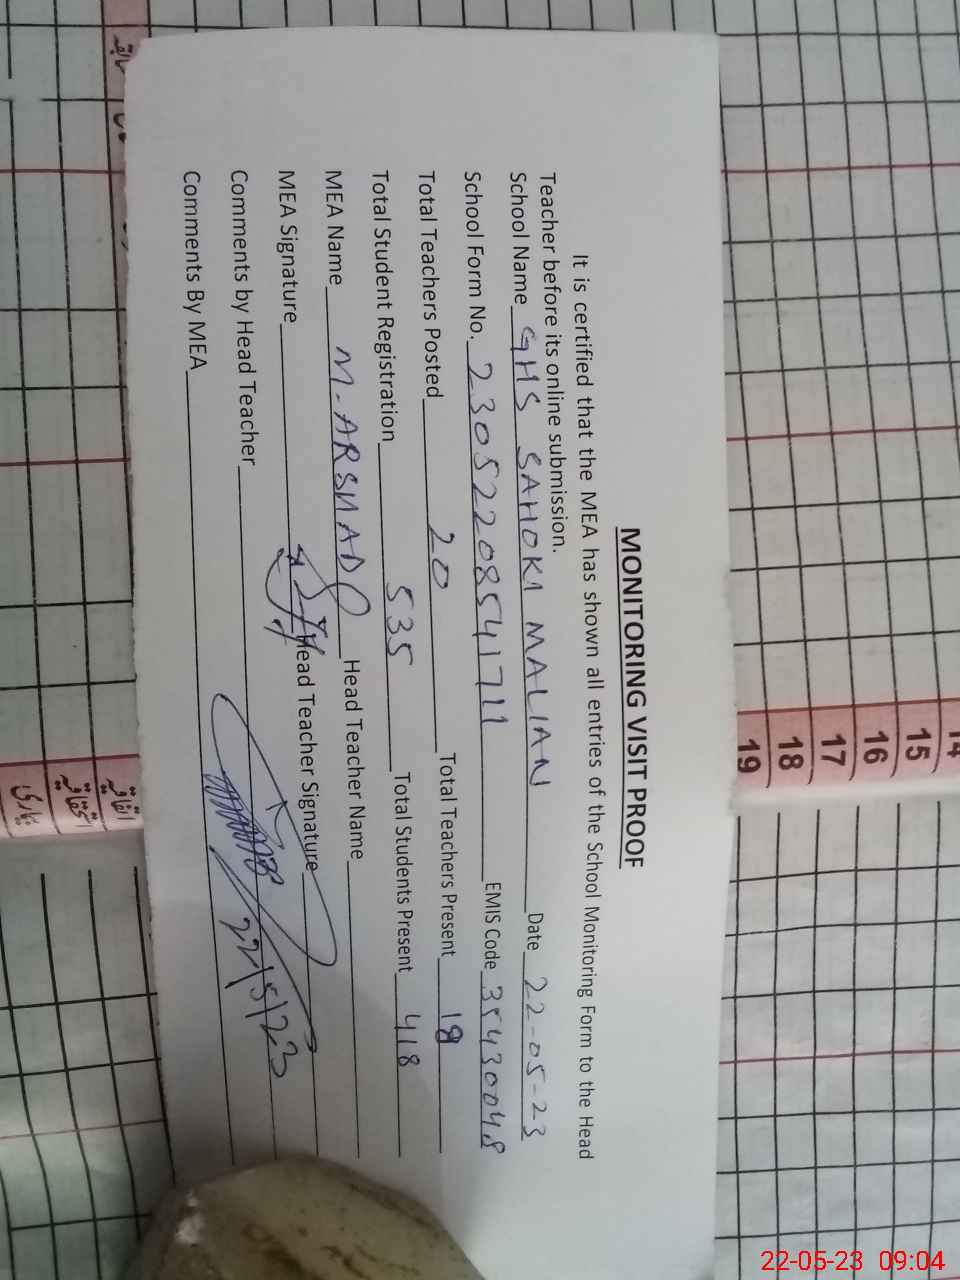 MONITORING VISIT PROOF
It is certified that the MEA has shown all entries of the School Monitoring Form to the Head
Teacher before its online submission.
School Name GHS SAHOKI MALIAN Date 22-05-23
School Form No. 23052208541711 EMIS Code 35430048
Total Teachers Posted 20 Total Teachers Present 18
Total Student Registration 535 Total Students Present 418
MEA Name M. ARSHAD Head Teacher Name
MEA Signature Head Teacher Signature
Comments by Head Teacher 22/5/23
Comments By MEA
14
15
16
17
18
19
22-05-23 09:04